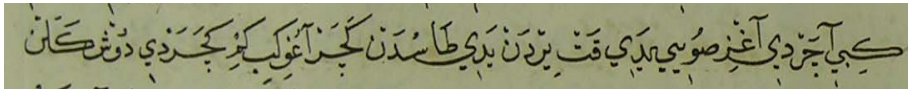 كِبِي آجَرْدِي آغْزِ صُويِي يَدِي قَتْ يِرْدَنْ يَدِي طَاسْدَنْ كَجَرْ آغُو كِبِ كَجَرْدِي دُوشْ كَلَنْ